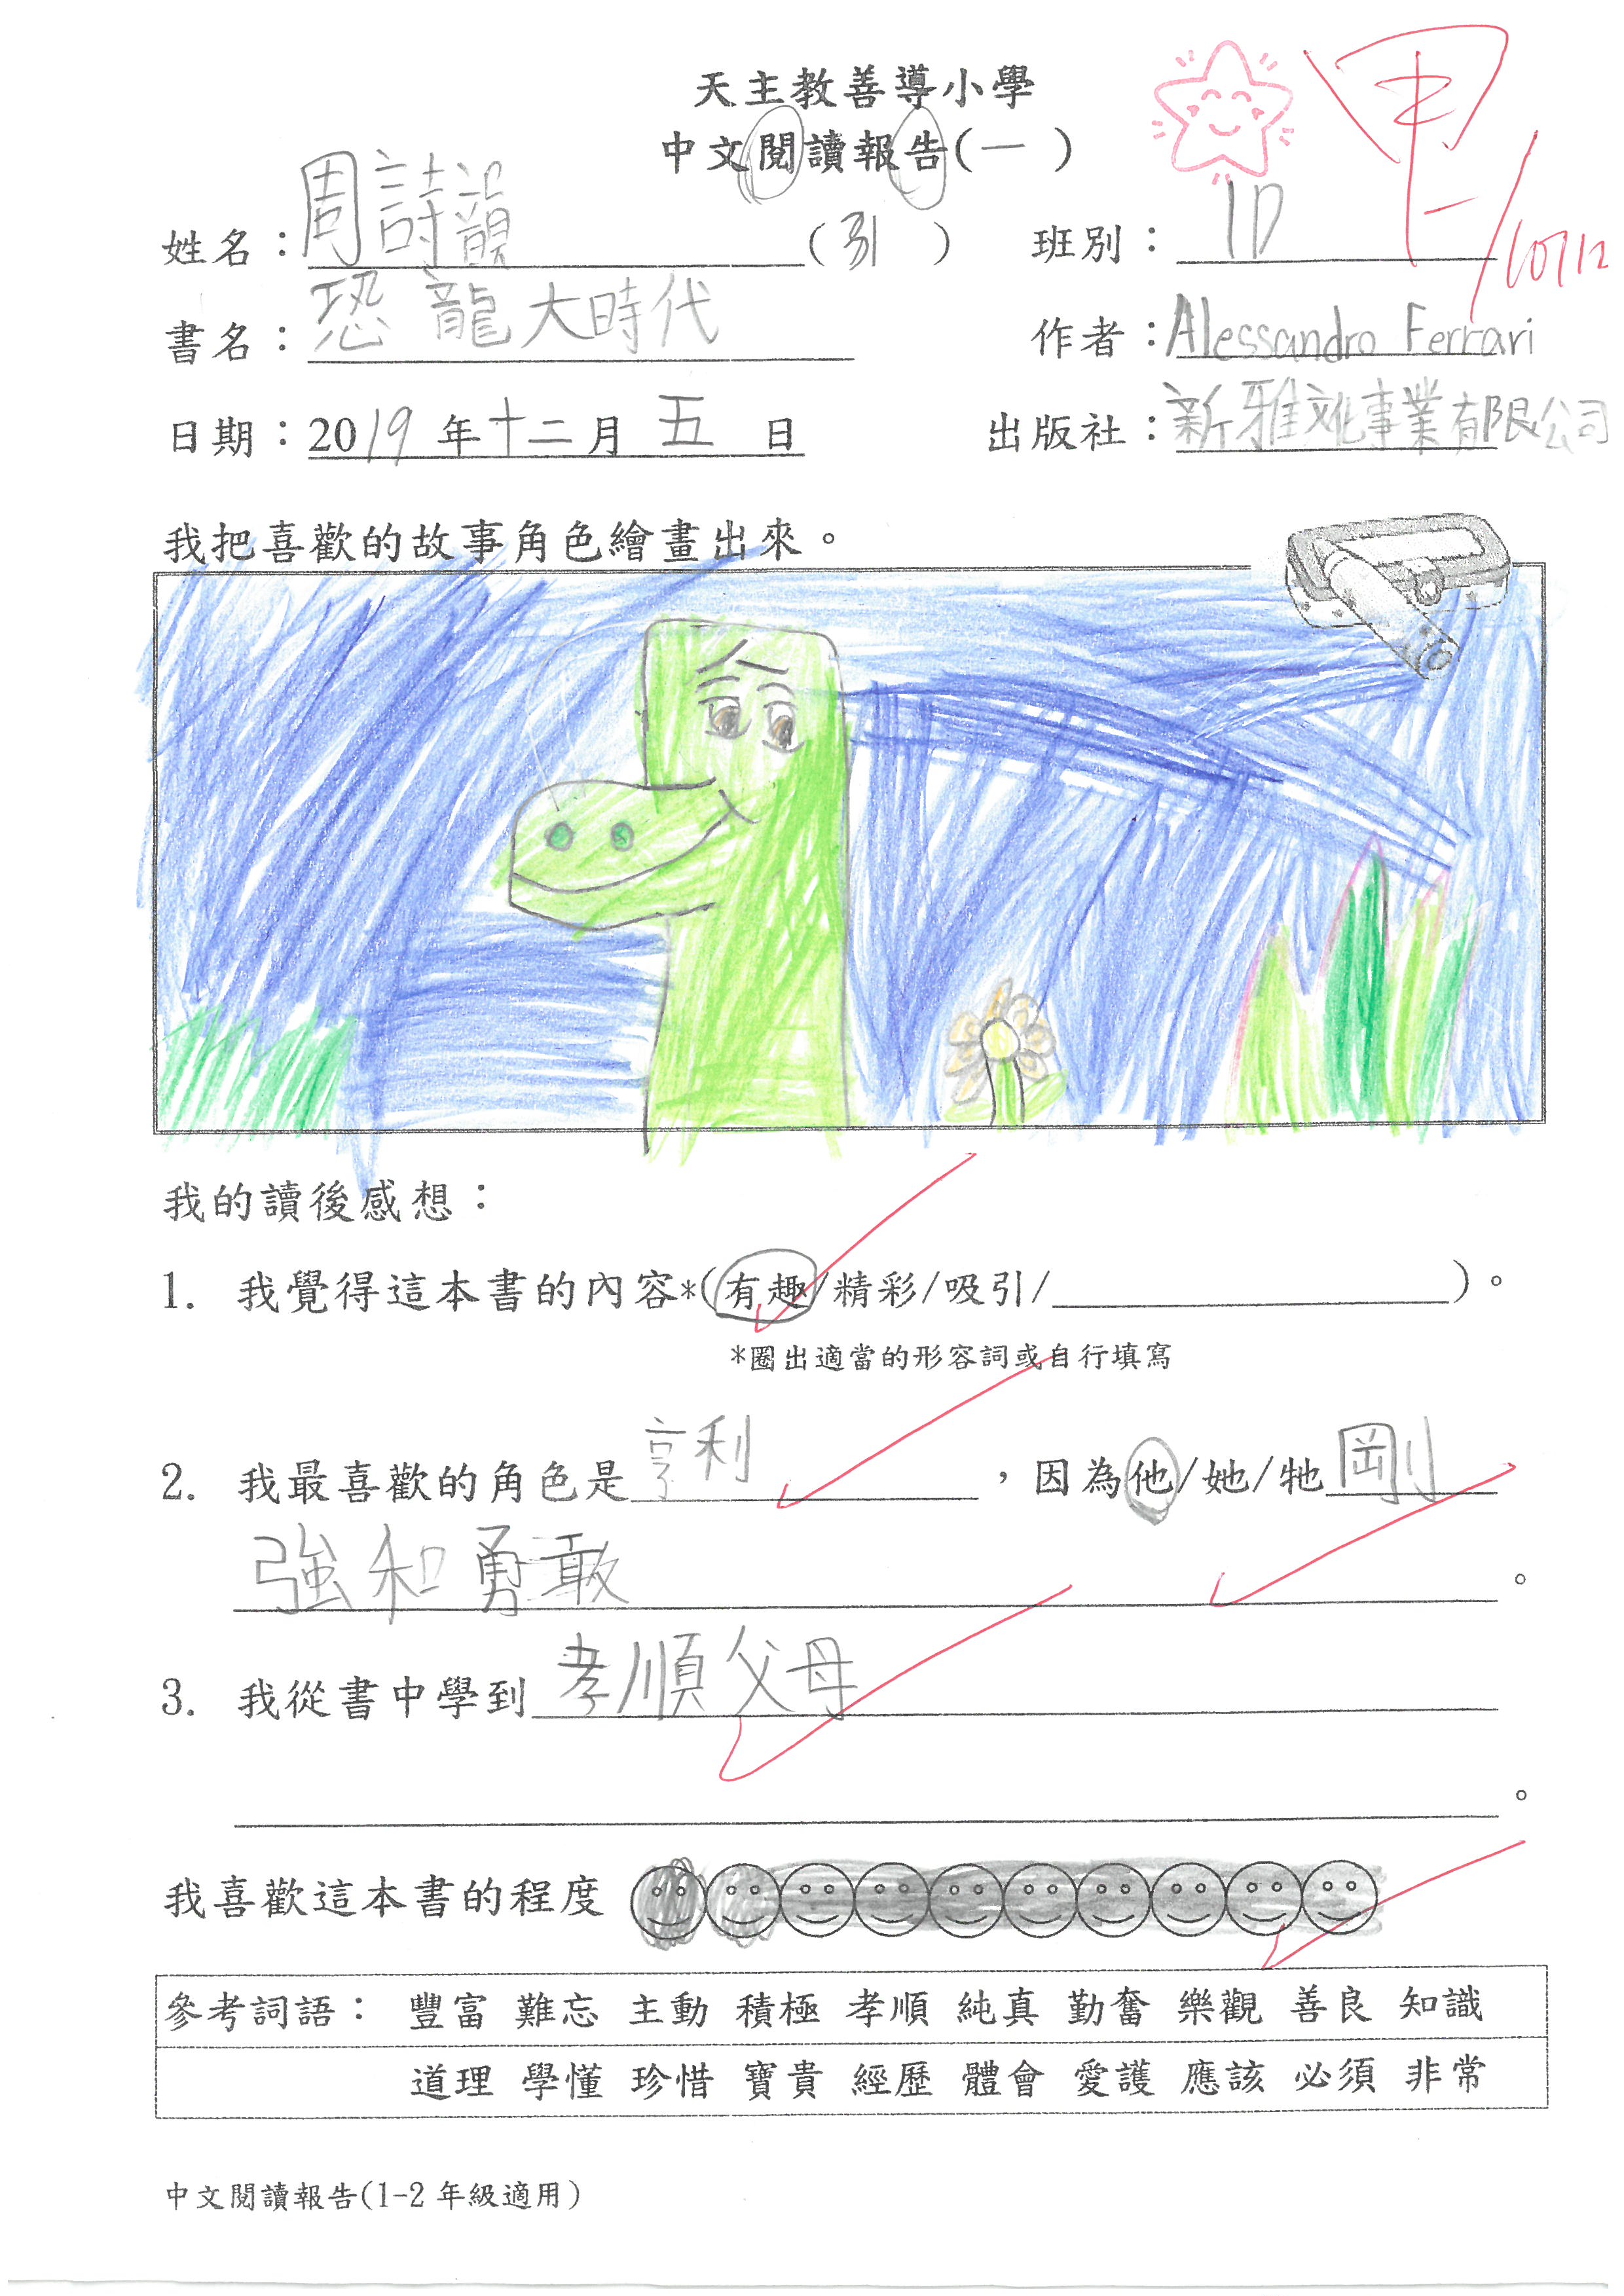 天主教善導小學
中文閱讀報告(一)
甲-
10/12
姓名：周詩韻(31) 班別：1D
書名：恐龍大時代 作者：Alessandro Ferrari
日期：2019年十二月五日 出版社：新雅文化事業有限公司
我把喜歡的故事角色繪畫出來。
我的讀後感想：
1. 我覺得這本書的內容*(有趣/精彩/吸引/________)。
*圈出適當的形容詞或自行填寫
2. 我最喜歡的角色是亨利，因為他/她/牠剛
強和勇敢。
3. 我從書中學到孝順父母
。
我喜歡這本書的程度
參考詞語： 豐富 難忘 主動 積極 孝順 純真 勤奮 樂觀 善良 知識
道理 學懂 珍惜 寶貴 經歷 體會 愛護 應該 必須 非常
中文閱讀報告(1-2年級適用)